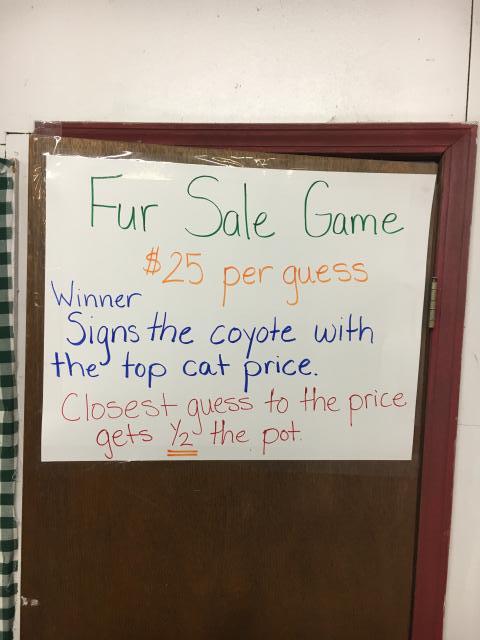 Fur Sale Game
$25 per guess
Winner
Signs the coyote with
the top cat price.
Closest guess to the price
gets 1/2 the pot.